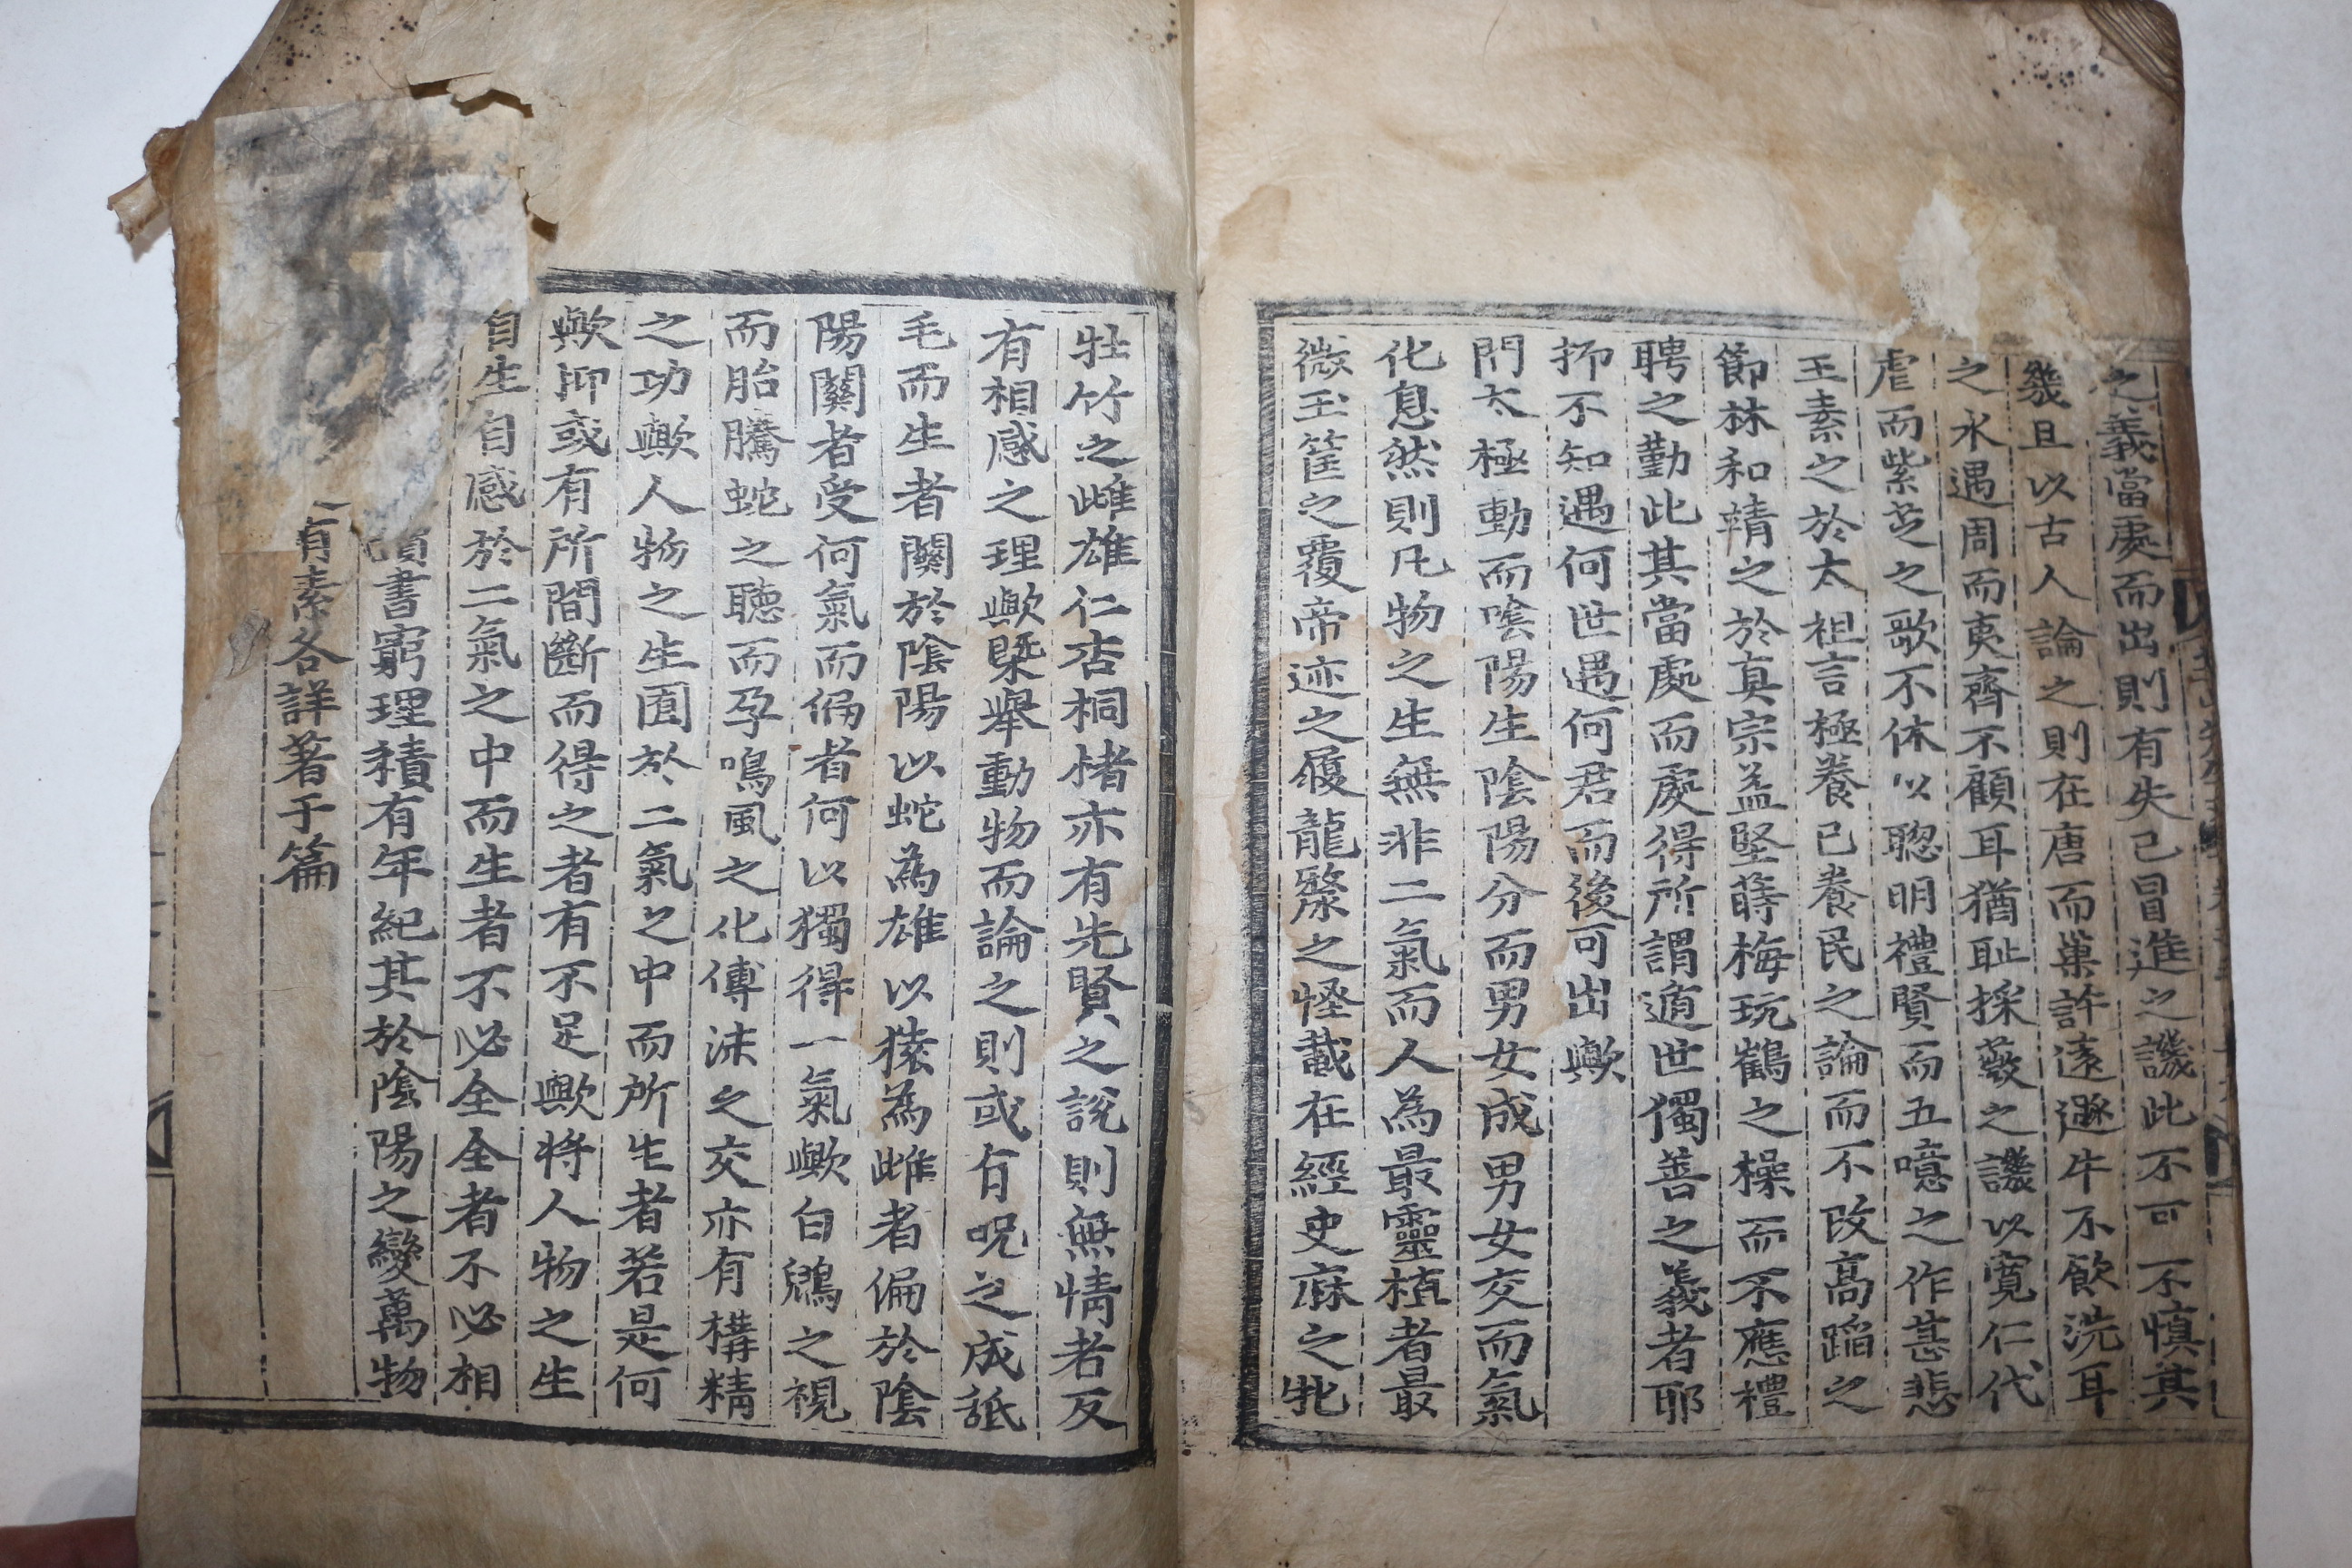 之義當處而出則有失己冒進之譏此不可不愼其
幾且以古人論之則在唐而巢許遠遯牛不飮洗耳
之水遇周而夷齊不顧耳猶耻採薇之譏以寬仁代
虐而紫芝之歌不休以聰明禮賢而五噫之作甚悲
王素之於太祖言極養己養民之論而不改高蹈之
節林和靖之於真宗益堅蒔梅玩鶴之操而不應禮
聘之勤此其當處而處得所謂遁世獨善之義者耶
抑不知遇何世遇何君而後可出歟
問太極動而陰陽生陰陽分而男女成男女交而氣
化息然則凡物之生無非二氣而人為最靈植者最
微玉筐之覆帝迹之履龍漦之怪載在經史麻之牝
牡竹之雌雄仁杏桐楮亦有先賢之說則無情者反
有相感之理歟槩舉動物而論之則或有呪之成舐
毛而生者關於陰陽以蛇為雄以猿為雌者偏於陰
陽關者受何氣而偏者何以獨得一氣歟白鷁之視
而胎騰蛇之聽而孕鳴風之化傅沫之交亦有構精
之功歟人物之生固於二氣之中而所生者若是何
歟抑或有所間斷而得之者有不足歟將人物之生
自生自感於二氣之中而生者不必全全者不必相
讀書窮理積有年紀其於陰陽之變萬物
有素各詳著于篇